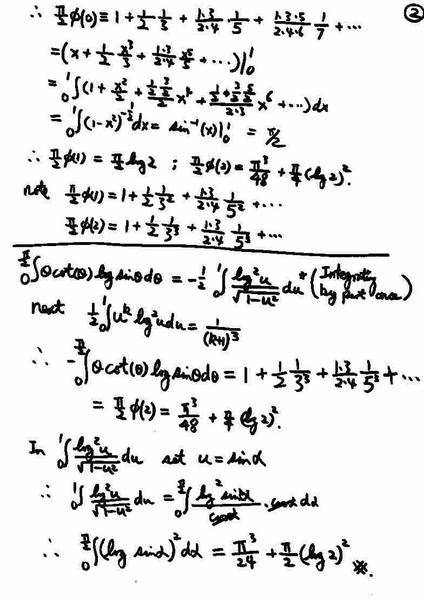 ②
∴ π/2 φ(0) ≡ 1 + 1/2 1/3 + 1·3/2·4 1/5 + 1·3·5/2·4·6 1/7 + ⋯
= (x + 1/2 x³/3 + 1·3/2·4 x⁵/5 + ⋯)|₀¹
= ₀∫¹(1 + x²/2 + (1/2 3/2)/2 x⁴ + (1/2 3/2 5/2)/(2·3) x⁶ + ⋯)dx
= ₀∫¹(1-x²)^(-1/2) dx = sin⁻¹(x)|₀¹ = π/2
∴ π/2 φ(1) = π/2 log 2 ; π/2 φ(2) = π³/48 + π/4 (log 2)².
note π/2 φ(1) = 1 + 1/2 1/3² + 1·3/2·4 1/5² + ⋯
π/2 φ(2) = 1 + 1/2 1/3³ + 1·3/2·4 1/5³ + ⋯
₀∫^(π/2) θ cot(θ) log sinθ dθ = -1/2 ₀∫¹ log²u/√(1-u²) du * (Integrating by part once)
next 1/2 ₀∫¹ uᵏ log²u du = 1/(k+1)³
∴ - ₀∫^(π/2) θ cot(θ) log sinθ dθ = 1 + 1/2 1/3³ + 1·3/2·4 1/5³ + ⋯
= π/2 φ(2) = π³/48 + π/4 (log 2)².
In ₀∫¹ log²u/√(1-u²) du set u = sinα
∴ ₀∫¹ log²u/√(1-u²) du = ₀∫^(π/2) log² sinα/cosα · cosα dα
∴ ₀∫^(π/2) (log sinα)² dα = π³/24 + π/2 (log 2)² ※.